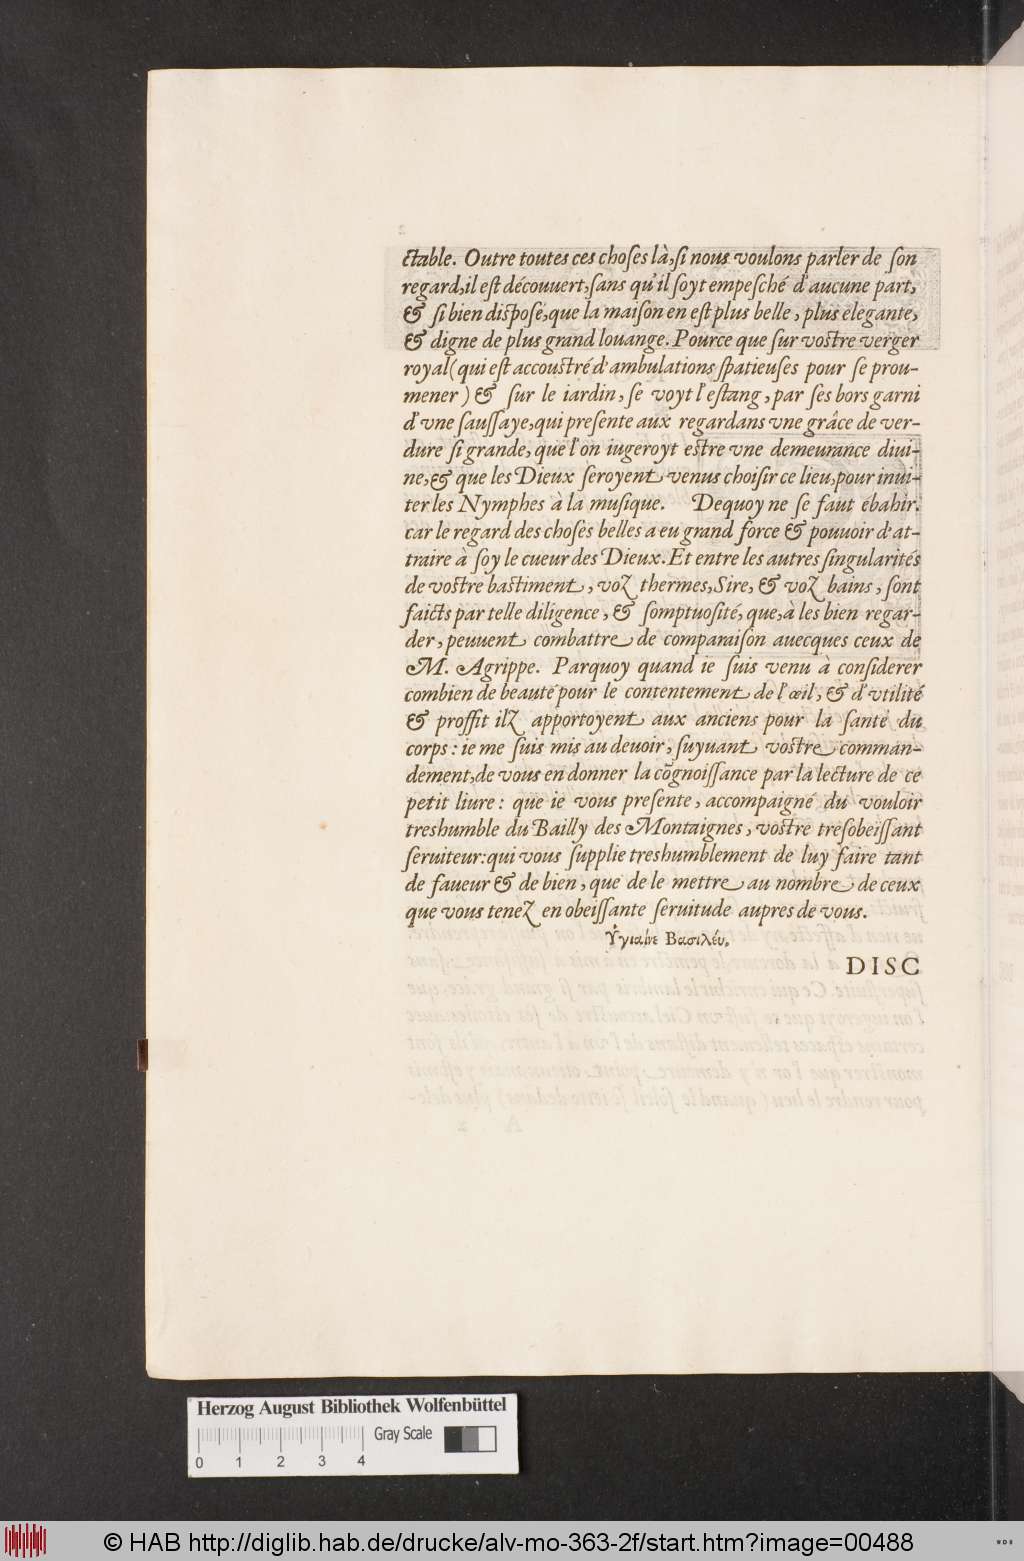 ctable. Outre toutes ces choſes là, ſi nous voulons parler de ſon
regard, il eſt découuert, ſans qu'il ſoyt empeſché d'aucune part,
& ſi bien diſposé, que la maiſon en eſt plus belle, plus elegante,
& digne de plus grand louange. Pource que ſur voſtre verger
royal (qui eſt accouſtré d'ambulations ſpatieuſes pour ſe prou-
mener) & ſur le iardin, ſe voyt l'eſtang, par ſes bors garni
d'vne ſauſſaye, qui preſente aux regardans vne grâce de ver-
dure ſi grande, que l'on iugeroyt eſtre vne demeurance diui-
ne, & que les Dieux ſeroyent venus choiſir ce lieu, pour inui-
ter les Nymphes à la muſique. Dequoy ne ſe faut ébahir.
car le regard des choſes belles a eu grand force & pouuoir d'at-
traire à ſoy le cueur des Dieux. Et entre les autres ſingularités
de voſtre baſtiment, voz thermes, Sire, & voz bains, ſont
faicts par telle diligence, & ſomptuoſité, que, à les bien regar-
der, peuuent combattre de comparaiſon auecques ceux de
M. Agrippe. Parquoy quand ie ſuis venu à conſiderer
combien de beauté pour le contentement de l'œil, & d'vtilité
& proffit ilz apportoyent aux anciens pour la ſanté du
corps : ie me ſuis mis au deuoir, ſuyuant voſtre comman-
dement, de vous en donner la cõgnoiſſance par la lecture de ce
petit liure : que ie vous preſente, accompaigné du vouloir
treshumble du Bailly des Montaignes, voſtre tresobeïſſant
ſeruiteur: qui vous ſupplie treshumblement de luy faire tant
de faueur & de bien, que de le mettre au nombre de ceux
que vous tenez en obeiſſante ſeruitude aupres de vous.
Ὑγιαίνε Βασιλεύ.
DISC
Herzog August Bibliothek Wolfenbüttel
Gray Scale
0 1 2 3 4
© HAB http://diglib.hab.de/drucke/alv-mo-363-2f/start.htm?image=00488